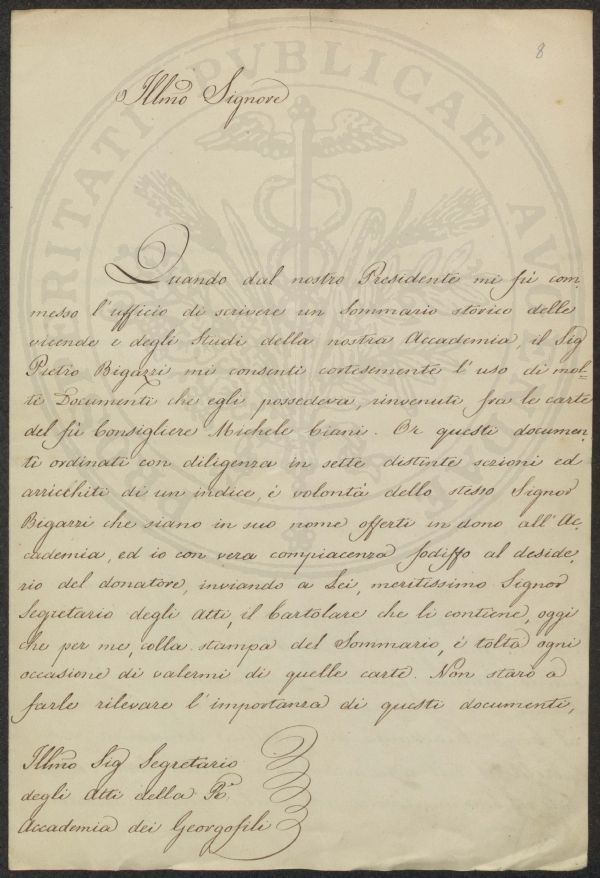 8
Illmo Signore
Quando dal nostro Presidente mi fù com
messo l'ufficio di scrivere un Sommario storico delle
vicende e degli Studi della nostra Accademia, il Sig
Pietro Bigazzi mi consentì cortesemente l'uso di mol-
ti Documenti che egli possedeva, rinvenuti fra le carte
del fù Consigliere Michele Ciani. Or questi documen
ti ordinati con diligenza in sette distinte sezioni ed
arricchiti di un indice, è volontà dello stesso Signor
Bigazzi che siano in suo nome offerti in dono all'Ac
cademia, ed io con vera compiacenza sodisfo al deside
rio del donatore, inviando a Lei, meritissimo Signor
Segretario degli Atti, il Cartolare che li contiene, oggi
che per me, colla stampa del Sommario, è tolta ogni
occasione di valermi di quelle carte. Non starò a
farle rilevare l'importanza di questi documenti,
Illmo Sig Segretario
degli Atti della Ra
Accademia dei Georgofili
PROSPERITATI PUBLICAE AUGENDAE